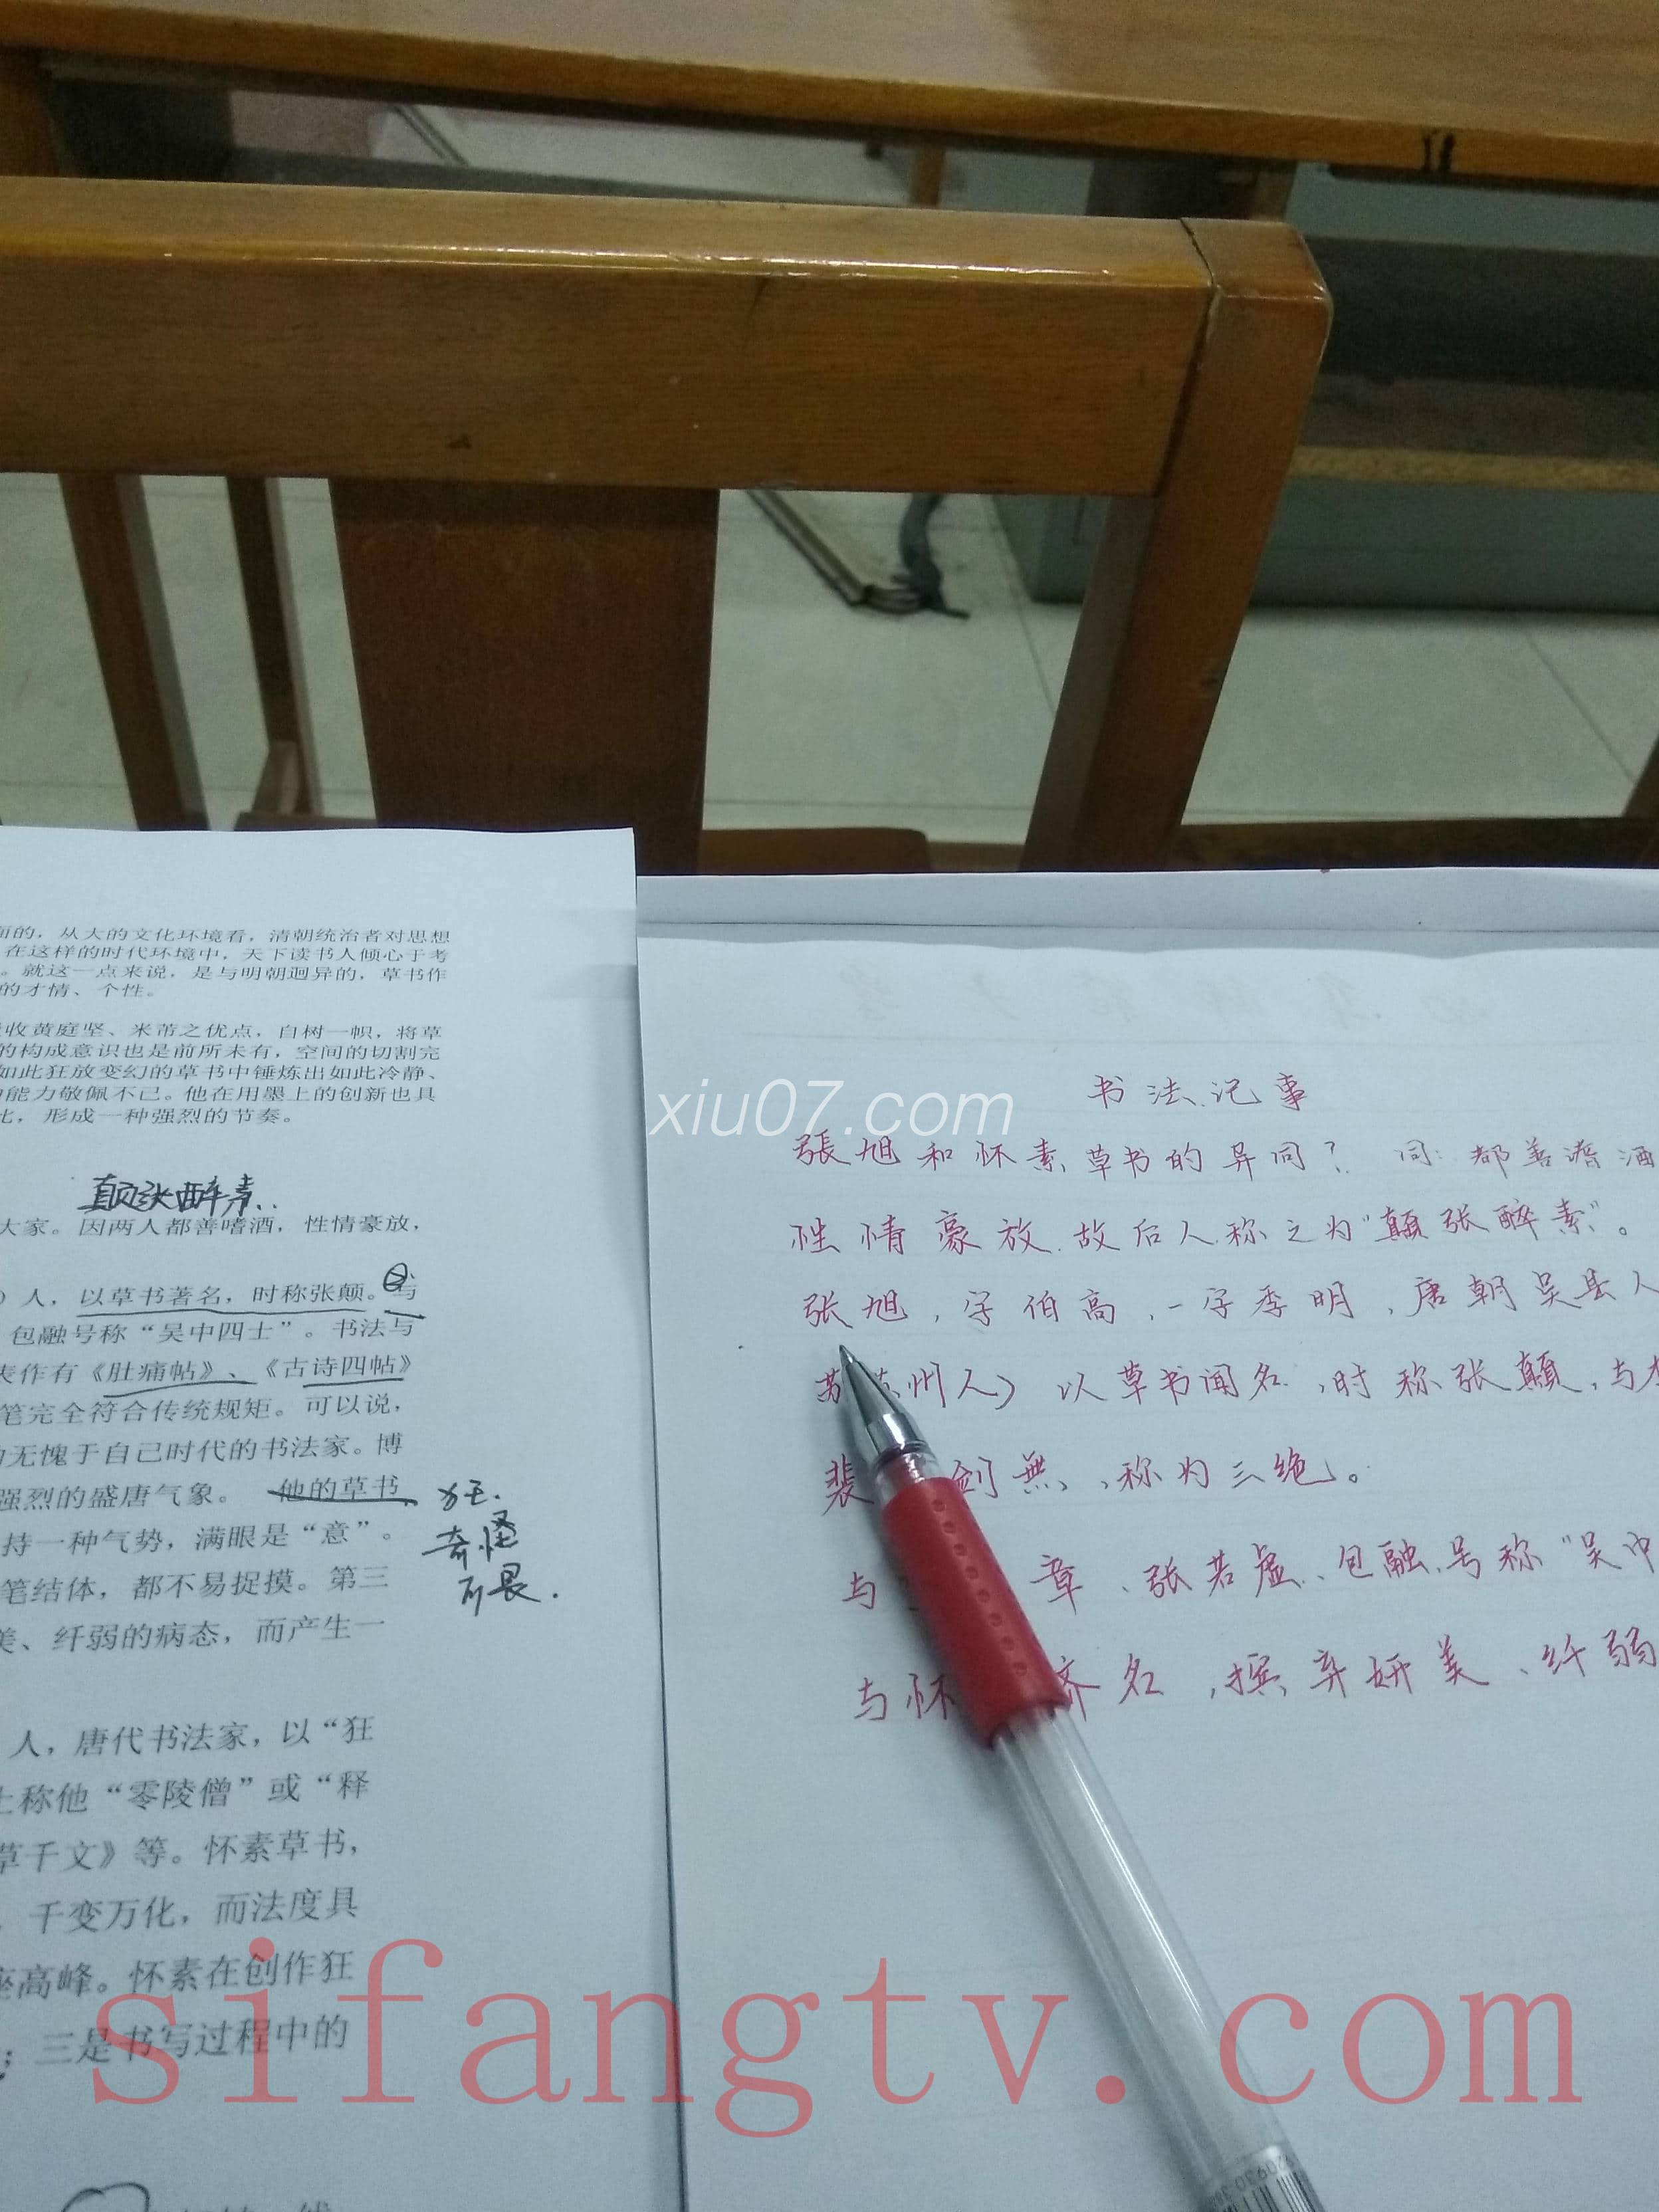 面的，从大的文化环境看，清朝统治者对思想
在这样的时代环境中，天下读书人倾心于考
。就这一点来说，是与明朝迥异的，草书作
的才情、个性。
收黄庭坚、米芾之优点，自树一帜，将草
的构成意识也是前所未有，空间的切割完
如此狂放变幻的草书中锤炼出如此冷静、
能力敬佩不已。他在用墨上的创新也具
比，形成一种强烈的节奏。
颠张醉素..
大家。因两人都善嗜酒，性情豪放，
）人，以草书著名，时称张颠。与
包融号称“吴中四士”。书法与
表作有《肚痛帖》、《古诗四帖》
笔完全符合传统规矩。可以说，
无愧于自己时代的书法家。博
强烈的盛唐气象。 他的草书
持一种气势，满眼是“意”。
笔结体，都不易捉摸。第三
美、纤弱的病态，而产生一
奇怪
人，唐代书法家，以“狂
称他“零陵僧”或“释
草千文》等。怀素草书，
，千变万化，而法度具
高峰。怀素在创作狂
；三是书写过程中的
书法记事
張旭和怀素草书的异同？ 同: 都善嗜酒
性情豪放.故后人称之为“颠张醉素”。
张旭，字伯高，一字季明，唐朝吴县人
州人）以草书闻名，时称张颠，与
裴 剑無，称为三绝。
与 章、张若虚、包融，号称“吴中
与怀 齐名，摈弃妍美、纤弱
xiu07.com
sifangtv.com